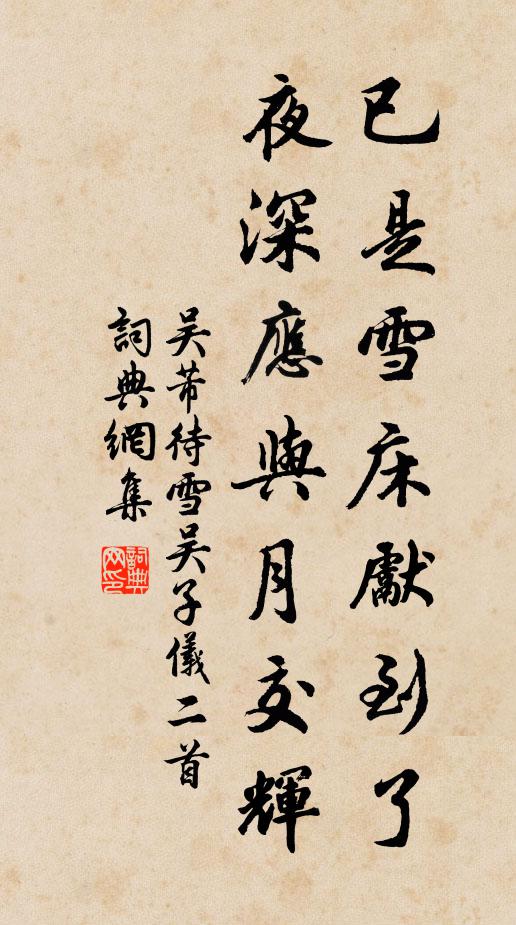 已是雪床獻到了
夜深應與月交輝
吳芾待雪吳子儀二首
詞典網集
詞典網印